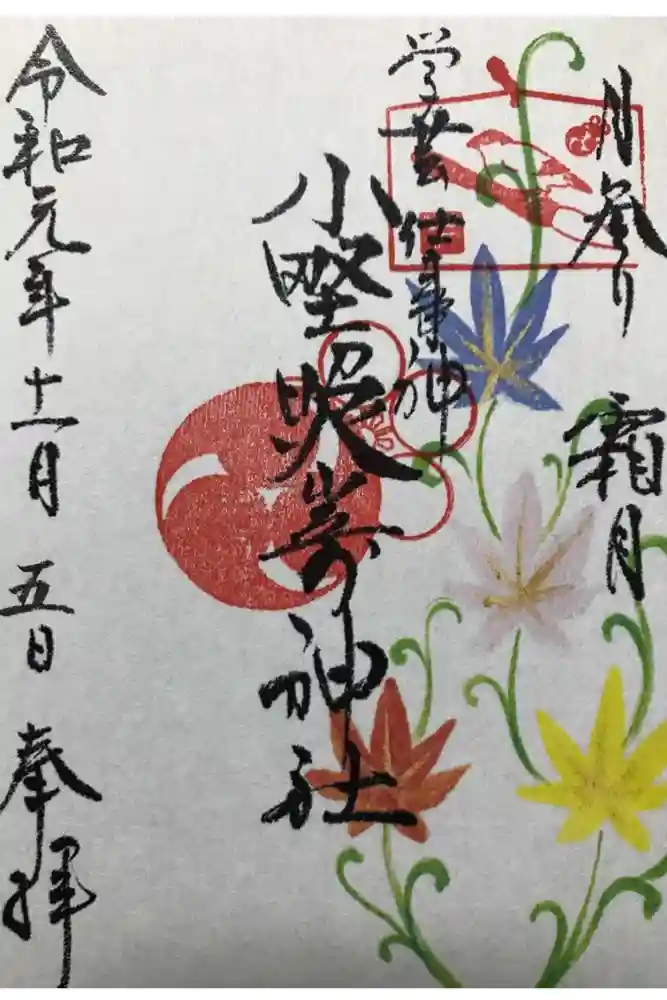 月参り 霜月
学芸 仕事神
小野照嵜神社
令和元年十一月五日 奉拝